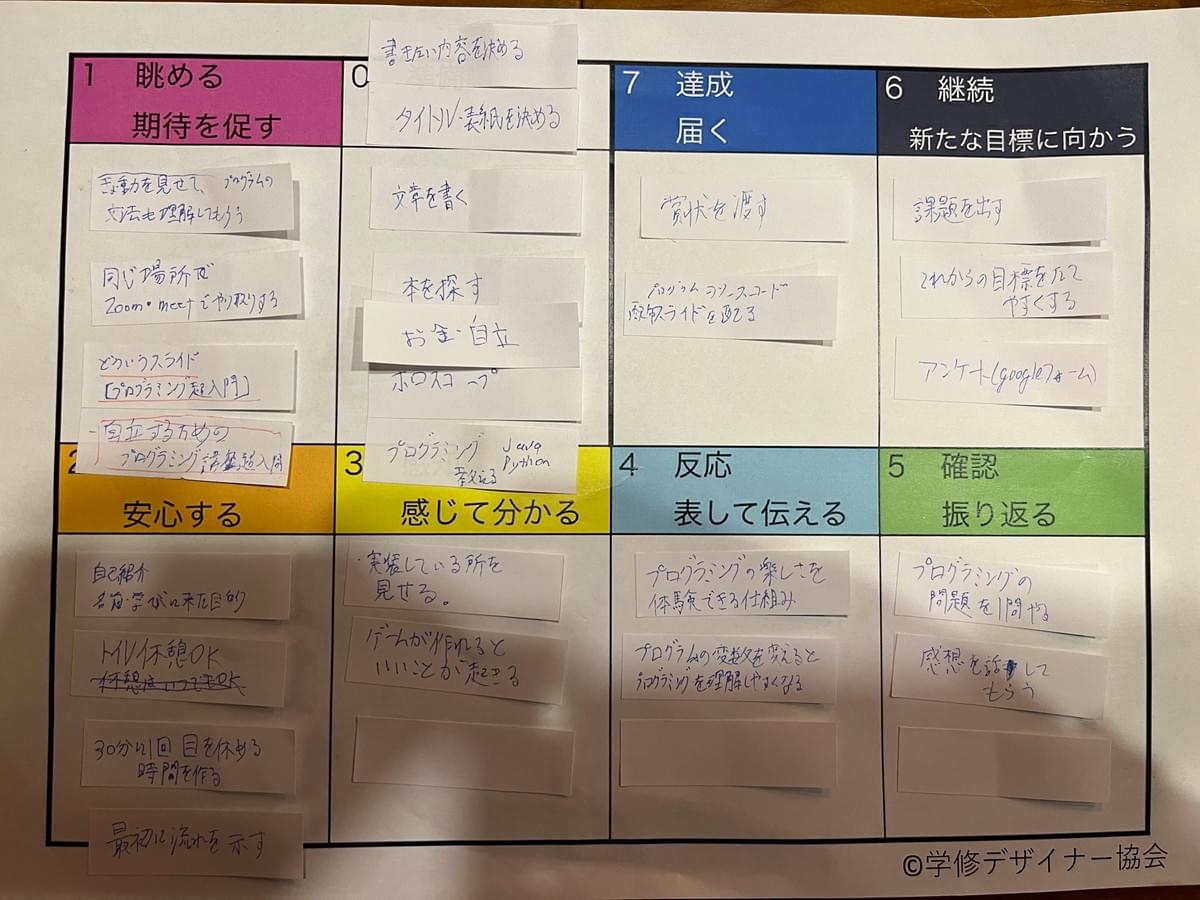 1 眺める
期待を促す
動を見せて、プログラムの
文法も理解してもらう
同じ場所で
Zoom・meetでやり取りする
どういうスライド
[プログラミング超入門]
・自立するための
プログラミング講座超入門
0
書きたい内容を決める
タイトル・表紙を決める
文章を書く
本を探す
お金・自立
ホロスコープ
プログラミング Java
Python
教える
7 達成
届く
賞状を渡す
プログラムのソースコード
スライドを
6 継続
新たな目標に向かう
課題を出す
これからの目標をたて
やすくする
アンケート(googleフォーム)
2
安心する
自己紹介
名前・学びに来た目的
トイレ休憩OK
休憩はいつでもOK
30分に1回 目を休める
時間を作る
最初に流れを示す
3
感じて分かる
・実装している所を
見せる。
ゲームが作れると
いいことが起きる
4 反応
表して伝える
プログラミングの楽しさを
体験できる仕組み
プログラムの変数を変えると
プログラミングを理解しやすくなる
5 確認
振り返る
プログラミングの
問題を1問やる
感想を話して
もらう
©学修デザイナー協会